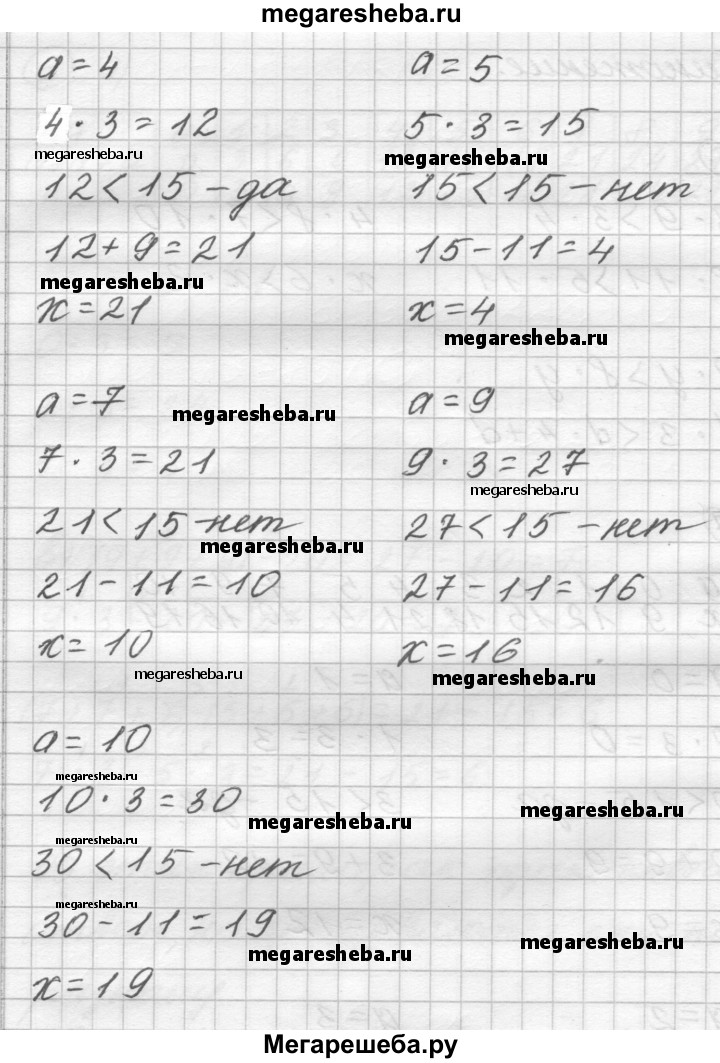 megaresheba.ru
a = 4
4 · 3 = 12
megaresheba.ru
12 < 15 - да
12 + 9 = 21
megaresheba.ru
x = 21
a = 5
5 · 3 = 15
megaresheba.ru
15 < 15 - нет
15 - 11 = 4
x = 4
megaresheba.ru
a = 7
megaresheba.ru
7 · 3 = 21
21 < 15 - нет
megaresheba.ru
21 - 11 = 10
x = 10
megaresheba.ru
a = 9
9 · 3 = 27
megaresheba.ru
27 < 15 - нет
27 - 11 = 16
x = 16
megaresheba.ru
a = 10
megaresheba.ru
10 · 3 = 30
megaresheba.ru
megaresheba.ru
megaresheba.ru
30 < 15 - нет
megaresheba.ru
30 - 11 = 19
megaresheba.ru
megaresheba.ru
x = 19
Мегарешеба.ру